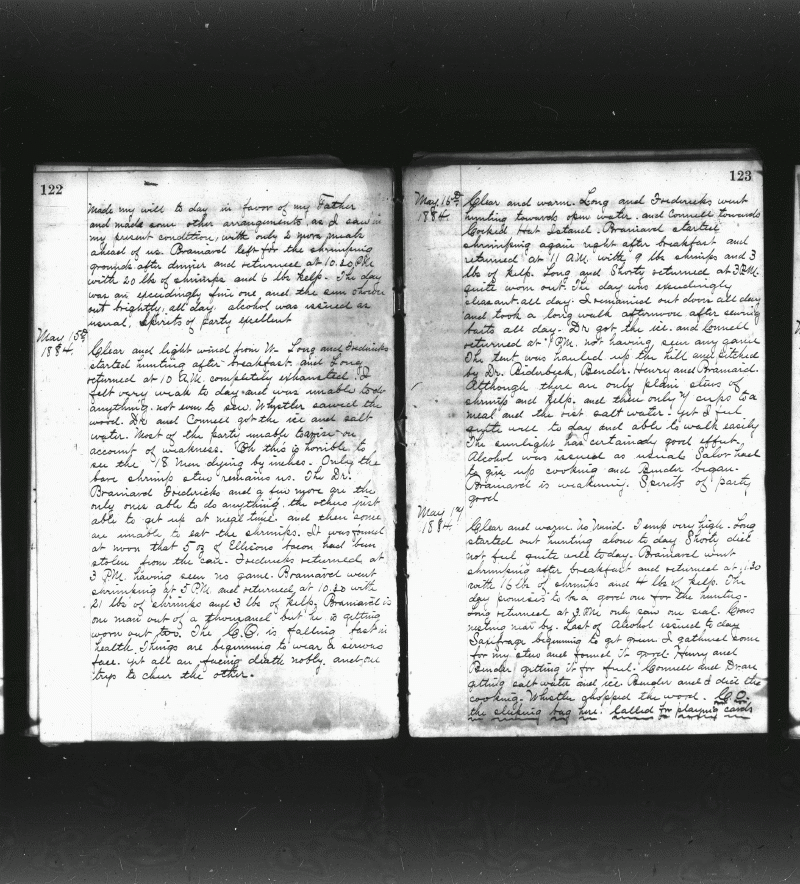 122
Made my will to day in favor of my Father
and made some other arrangements as I saw in
my present condition, with only 2 more meals
ahead of us. Brainard left for the shrimping
grounds after dinner and returned at 10.20 P.M.
with 20 lbs of shrimps and 6 lbs kelp. The day
was an exceedingly fine one, and the sun shone
out brightly, all day. alcohol was issued as
usual, Spirits of party excellent
May 15th
1884.
Clear and light wind from W- Long and Fredericks
started hunting after breakfast and Long
returned at 10 A.M. completely exhausted. I
felt very weak to day and was unable to do
anything. not even to sew. Whistler sawed the
wood. Dr and Connell got the ice and salt
water. Most of the party unable to arise on
account of weakness. Oh this is horrible to
see the 18 men dying by inches. Only the
bare shrimp stew remains us. The Dr.
Brainard Fredericks and a few more are the
only ones able to do anything, the others just
able to get up at meal time. and then some
are unable to eat the shrimps. It was found
at noon that 5 oz of Ellisons bacon had been
stolen from the can. Fredericks returned at
3 P.M. having seen no game. Brainard went
shrimping at 5 P.M. and returned at 10.20 with
21 lbs of shrimps and 3 lbs of kelp, Brainard is
one man out of a thousand but he is getting
worn out too. The C.O. is falling fast in
health. Things are beginning to wear a serious
face. yet all are facing death nobly, and on
trip to cheer the other.
123
May. 16th
1884.
Clear and warm. Long and Fredericks went
hunting towards open water. and Connell towards
Cocked Hat Island. Brainard started
shrimping again right after breakfast and
returned at 11 A.M. with 9 lbs shrimps and 3
lbs of kelp. Long and Shorty returned at 3 P.M.
quite worn out. The day was exceedingly
pleasant all day. I remained out doors all day
and took a long walk afternoon after sewing
all day. Dr got the ice. and Connell
returned at 9 P.M. not having seen any game
The tent was hauled up the hill and pitched
by Dr. Biderbick, Bender. Henry and Brainard.
Although there are only plain stews of
shrimps and kelp, and then only cups to a
meal and the rest salt water. yet I feel
quite well to day and able to walk easily
The sunlight has certainly good effect.
Alcohol was issued as usual Salor had
to give up cooking and Bender began.
Brainard is weakening. Spirits of party,
good
May 17
1884.
Clear and warm. no wind. Temp very high. Long
started out hunting alone to day Shorty did
not feel quite well to day. Brainard went
shrimping after breakfast and returned at 1.30
with 16 lbs of shrimps and 4 lbs of kelp. The
day promises to be a good one for the hunting.
Long returned at 3. P.M. only saw one seal. Crows
nesting near by. Last of Alcohol issued to day
Saxifrage beginning to get green. I gathered some
for my stew and found it good. Henry and
Bender getting it for fuel. Connell and Dr are
getting salt water and ice. Bender and I did the
cooking. Whistler chopped the wood. C.O.
the sleeping bag here. Called for playing cards